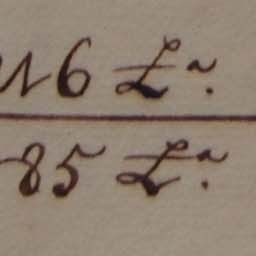 16 Lª.
85 Lª.